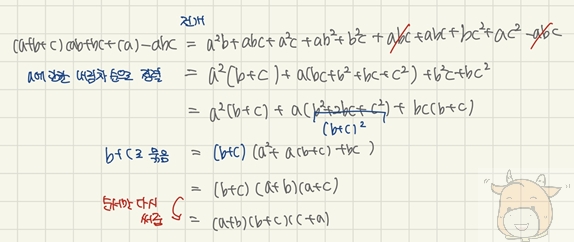 전개
(a+b+c)(ab+bc+ca)-abc = a²b+abc+a²c+ab²+b²c+abc+abc+bc²+ac²-abc
a에 관한 내림차순으로 정렬 = a²(b+c)+a(bc+b²+bc+c²)+b²c+bc²
= a²(b+c)+a(b²+2bc+c²)+bc(b+c)
(b+c)²
b+c로 묶음 = (b+c)(a²+a(b+c)+bc)
= (b+c)(a+b)(a+c)
순서만 다시 써줌 = (a+b)(b+c)(c+a)